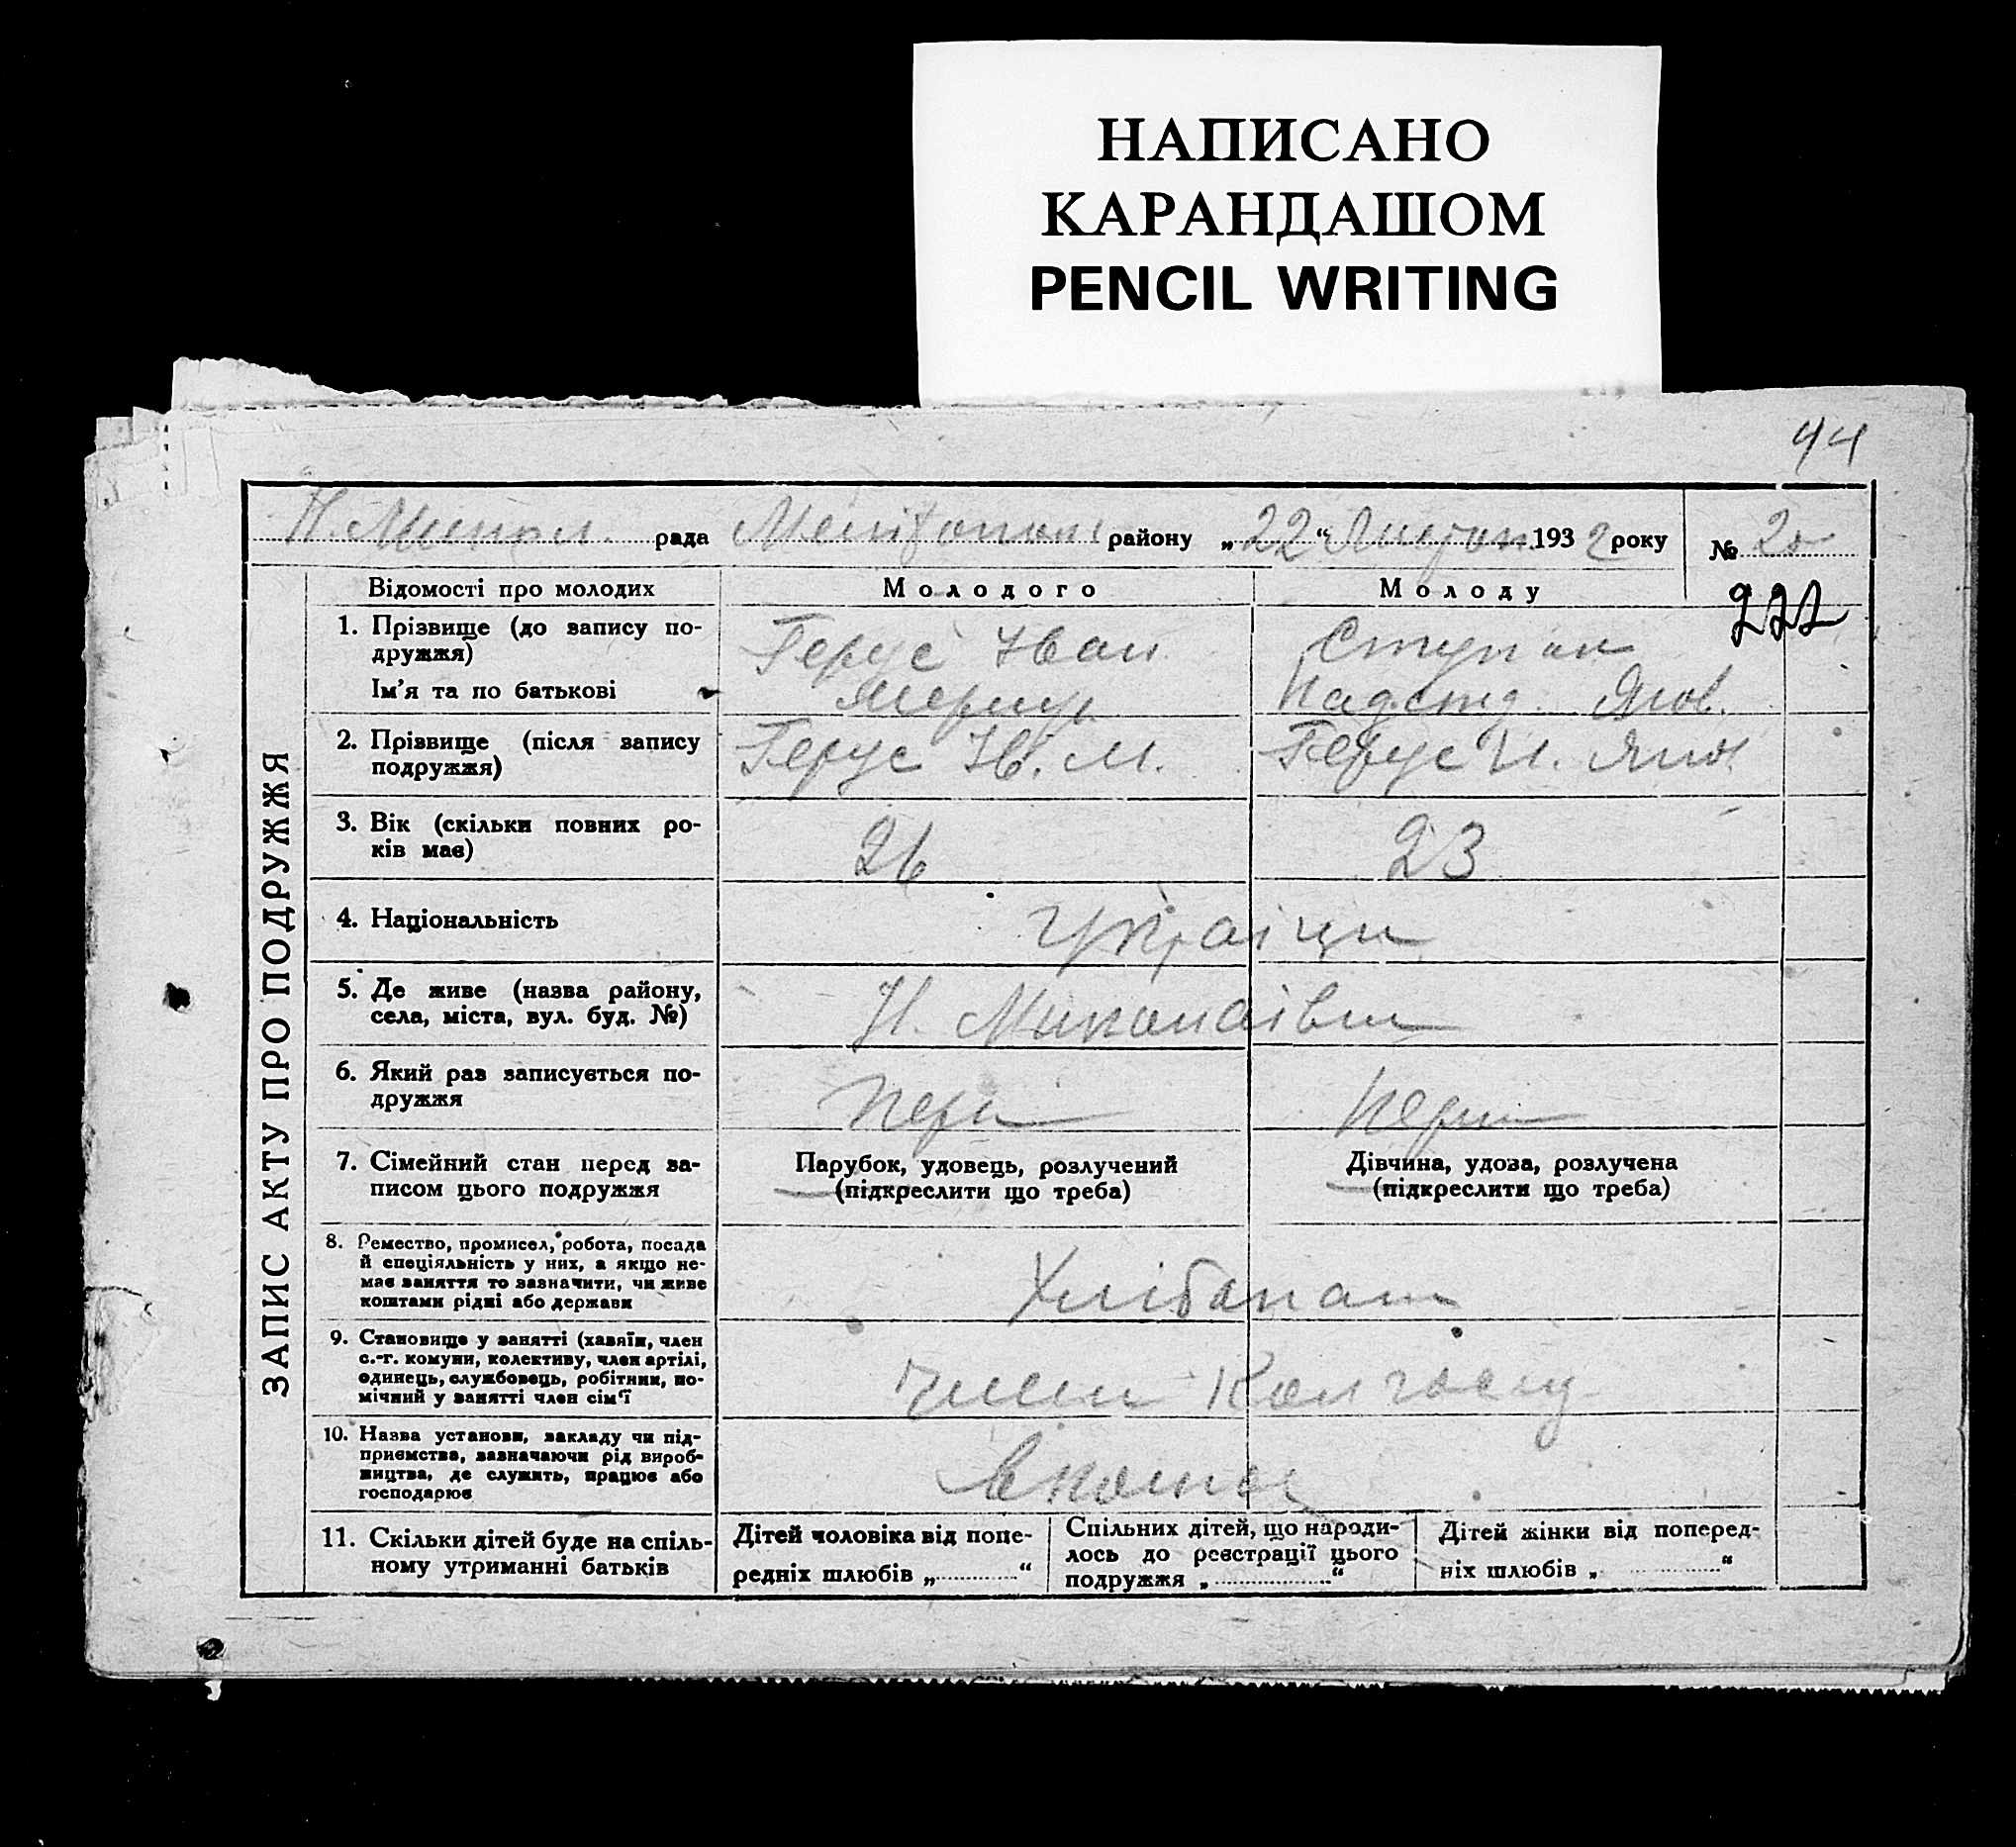 НАПИСАНО
КАРАНДАШОМ
PENCIL WRITING
44
Н. Микол. рада Мелітопол району „22“ 193 2 року № 20
222
ЗАПИС АКТУ ПРО ПОДРУЖЖЯ
Відомості про молодих Молодого Молоду
1. Прізвище (до запису по- Герус Іван Ступак
дружжя)
Ім'я та по батькові Яков.
2. Прізвище (після запису Герус Ів. М. Герус Н. Яков
подружжя)
3. Вік (скільки повних ро- 26 23
ків має)
4. Національність Українці
5. Де живе (назва району, Н. Миколаівка
села, міста, вул. буд. №)
6. Який раз записується по- перш перш
дружжя
7. Сімейний стан перед за- Парубок, удовець, розлучений Дівчина, удова, розлучена
писом цього подружжя (підкреслити що треба) (підкреслити що треба)
8. Ремество, промисел, робота, посада
й спеціяльність у них, а якщо не-
має заняття то зазначити, чи живе Хлібопаш
коштами рідні або держави
9. Становище у занятті (хазяїн, член
с.-г. комуни, колективу, член артілі,
одинець, службовець, робітник, по- Член Колгоспу
мічний у занятті член сім'ї
10. Назва установи, закладу чи під-
приємства, зазначаючи рід вироб-
ництва, де служить, працює або
господарює
11. Скільки дітей буде на спіль- Дітей чоловіка від попе- Спільних дітей, що народи- Дітей жінки від поперед-
ному утриманні батьків редніх шлюбів „ “ лось до реєстрації цього ніх шлюбів „ “
подружжя „ “